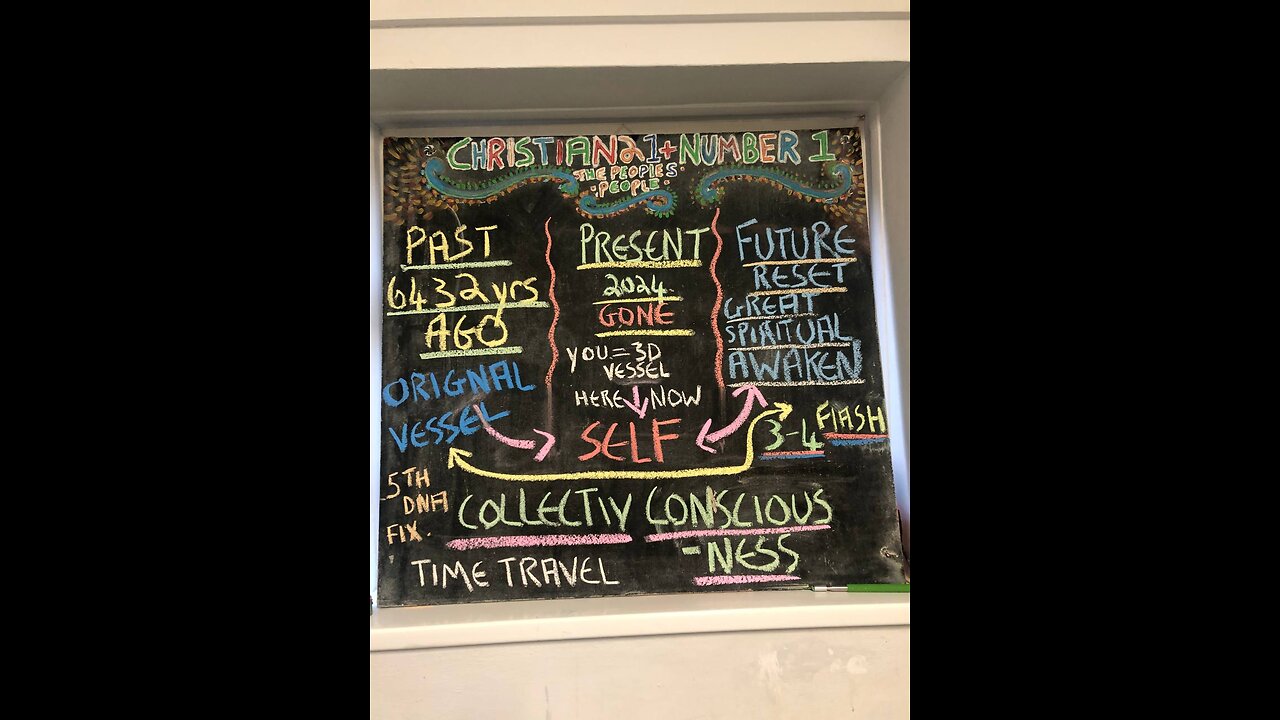 CHRISTIAN21+NUMBER 1
THE PEOPLES
PEOPLE
PAST
6432yrs
AGO
ORIGNAL
VESSEL
5TH
DNA
FIX.
PRESENT
2024
GONE
YOU=3D
VESSEL
HERE NOW
SELF
FUTURE
RESET
GREAT
SPIRITUAL
AWAKEN
3-4 FLASH
COLLECTIV CONSCIOUS
-NESS
TIME TRAVEL